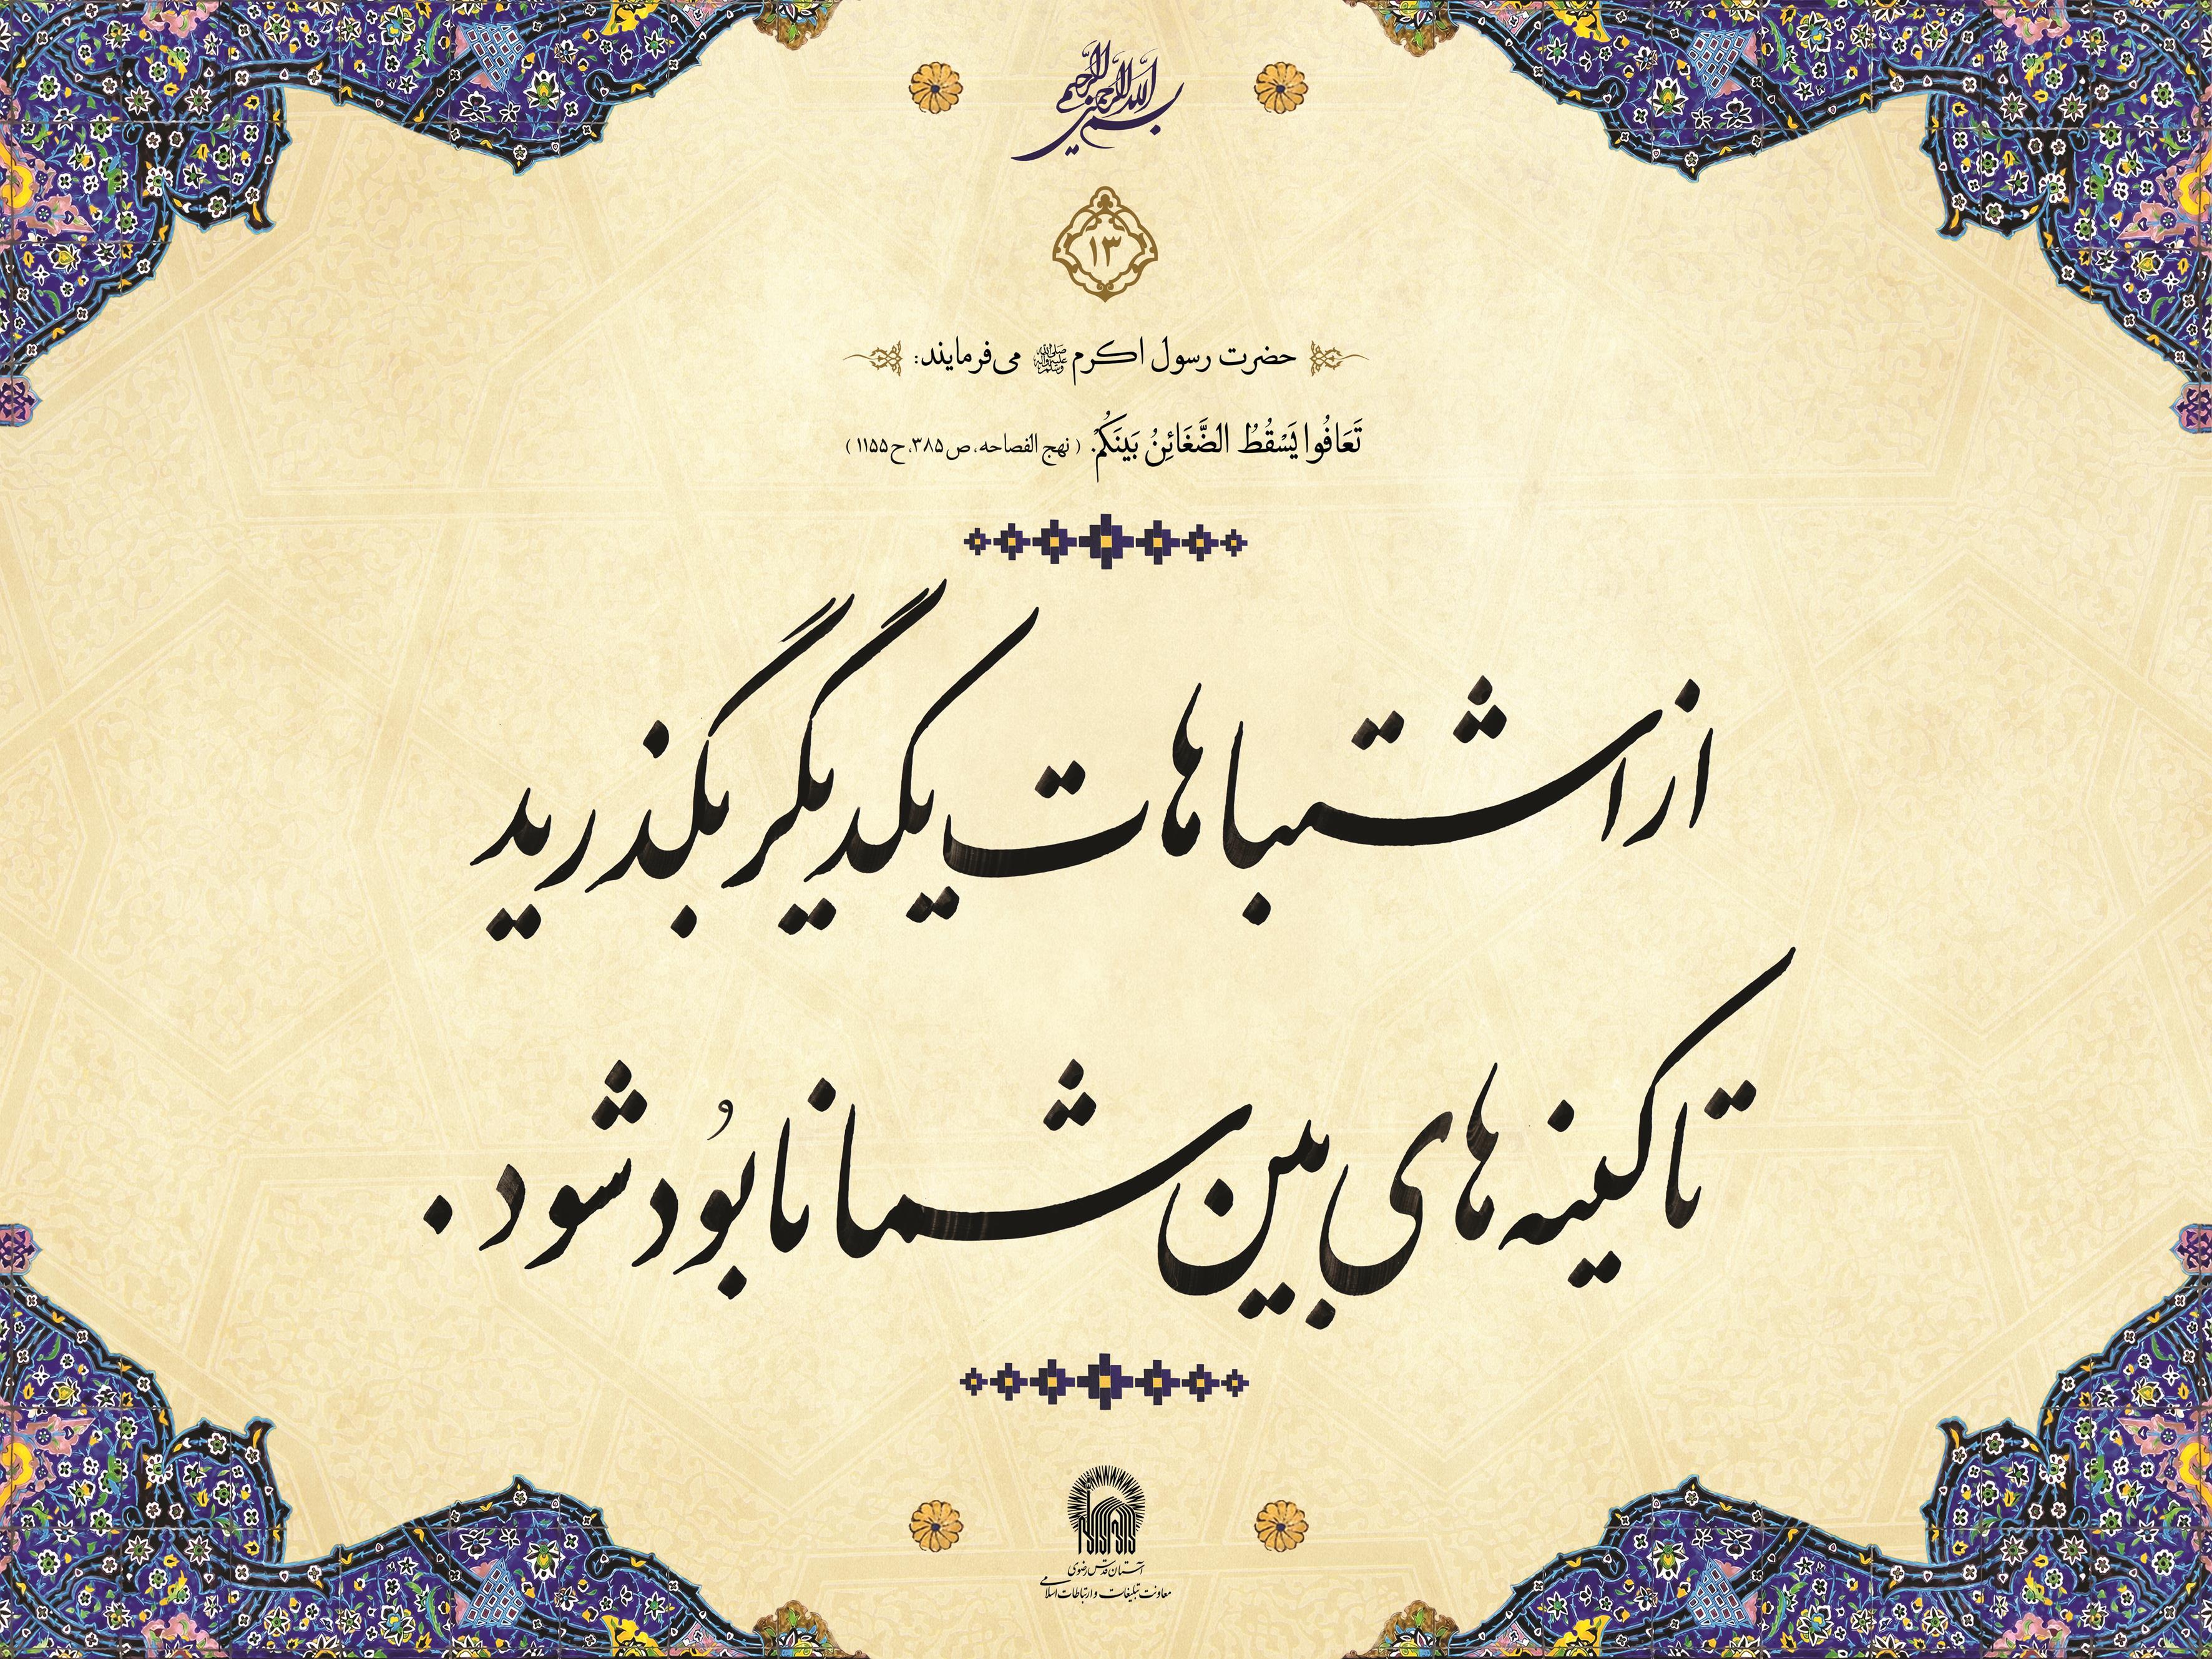 بسم الله الرحمن الرحیم
۱۳
حضرت رسول اکرم ﷺ می‌فرمایند:
تَعَافُوا يَسْقُطُ الضَّغَائِنُ بَينَكُمْ. ( نهج الفصاحه، ص۳۸۵، ح۱۱۵۵ )
از اشتباهات یکدیگر بگذرید
تا کینه‌های بین شما نابُود شود .
آستان قدس رضوی
معاونت تبلیغات و ارتباطات اسلامی